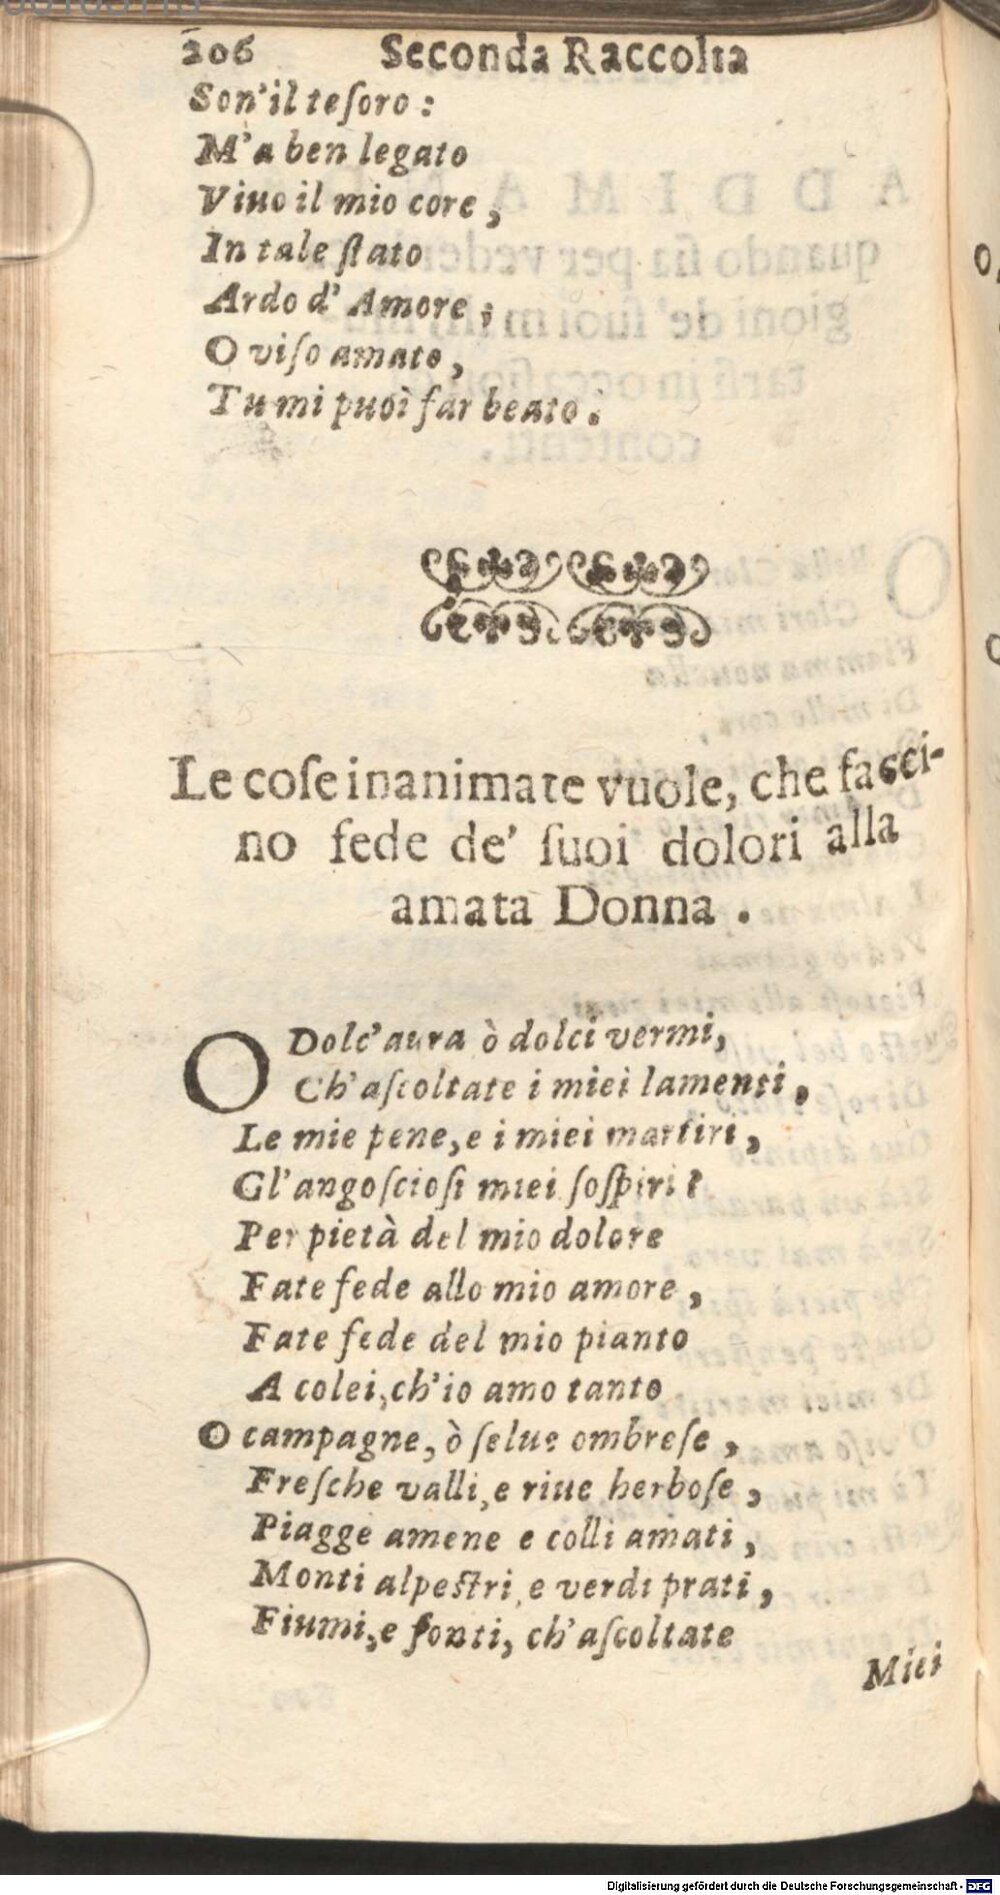 206 Seconda Raccolta
Son' il tesoro :
M'a ben legato
Viuo il mio core ,
In tale stato
Ardo d' Amore ;
O viso amato ,
Tu mi puoi far beato .
Le cose inanimate vuole, che facci-
no fede de' suoi dolori alla
amata Donna .
O Dolc'aura ò dolci vermi,
Ch'ascoltate i miei lamenti ,
Le mie pene, e i miei martiri ,
Gl'angosciosi miei sospiri
Per pietà del mio dolore
Fate fede allo mio amore ,
Fate fede del mio pianto
A colei, ch'io amo tanto
O campagne, ò selue ombrese ,
Fresche valli, e riue herbose ,
Piagge amene e colli amati ,
Monti alpestri, e verdi prati ,
Fiumi, e fonti, ch'ascoltate
Miei
Digitalisierung gefördert durch die Deutsche Forschungsgemeinschaft - DFG